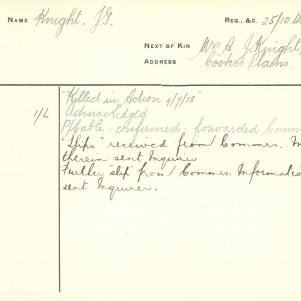 NAME Knight, J.G. REG., &C. 25/10
NEXT OF KIN Mrs A. J. Knight,
ADDRESS Cooke Plains.
"Killed in Action 9/7/18"
1/L Acknowledged
P/Cable - confirmed - forwarded Commrs
"Slips" received from Commrs. In
therein sent Inquirer
Further slip from Commrs. Informatio
sent Inquirer.